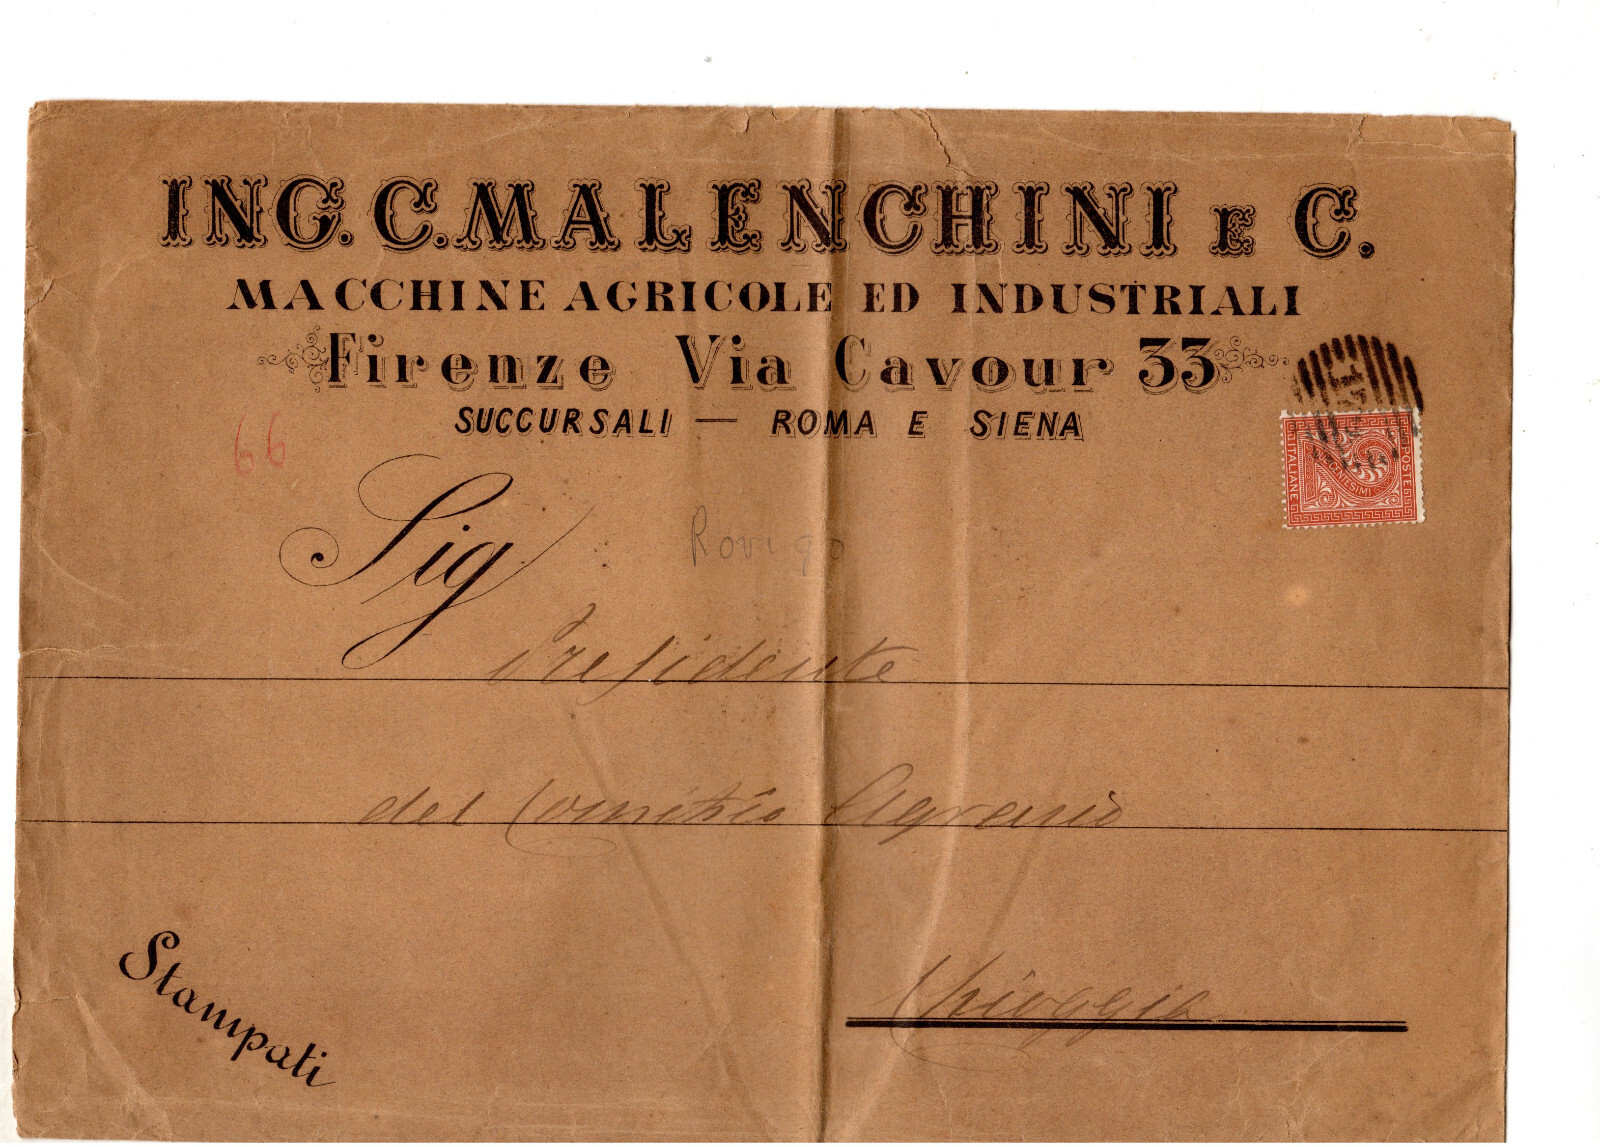 ING. C. MALENCHINI E C.
MACCHINE AGRICOLE ED INDUSTRIALI
Firenze Via Cavour 33
SUCCURSALI — ROMA E SIENA
66
POSTE
ITALIANE
CENTESIMI
2
Sig
Rovigo
Presidente
del Comitzio Agrario
Chioggia
Stampati